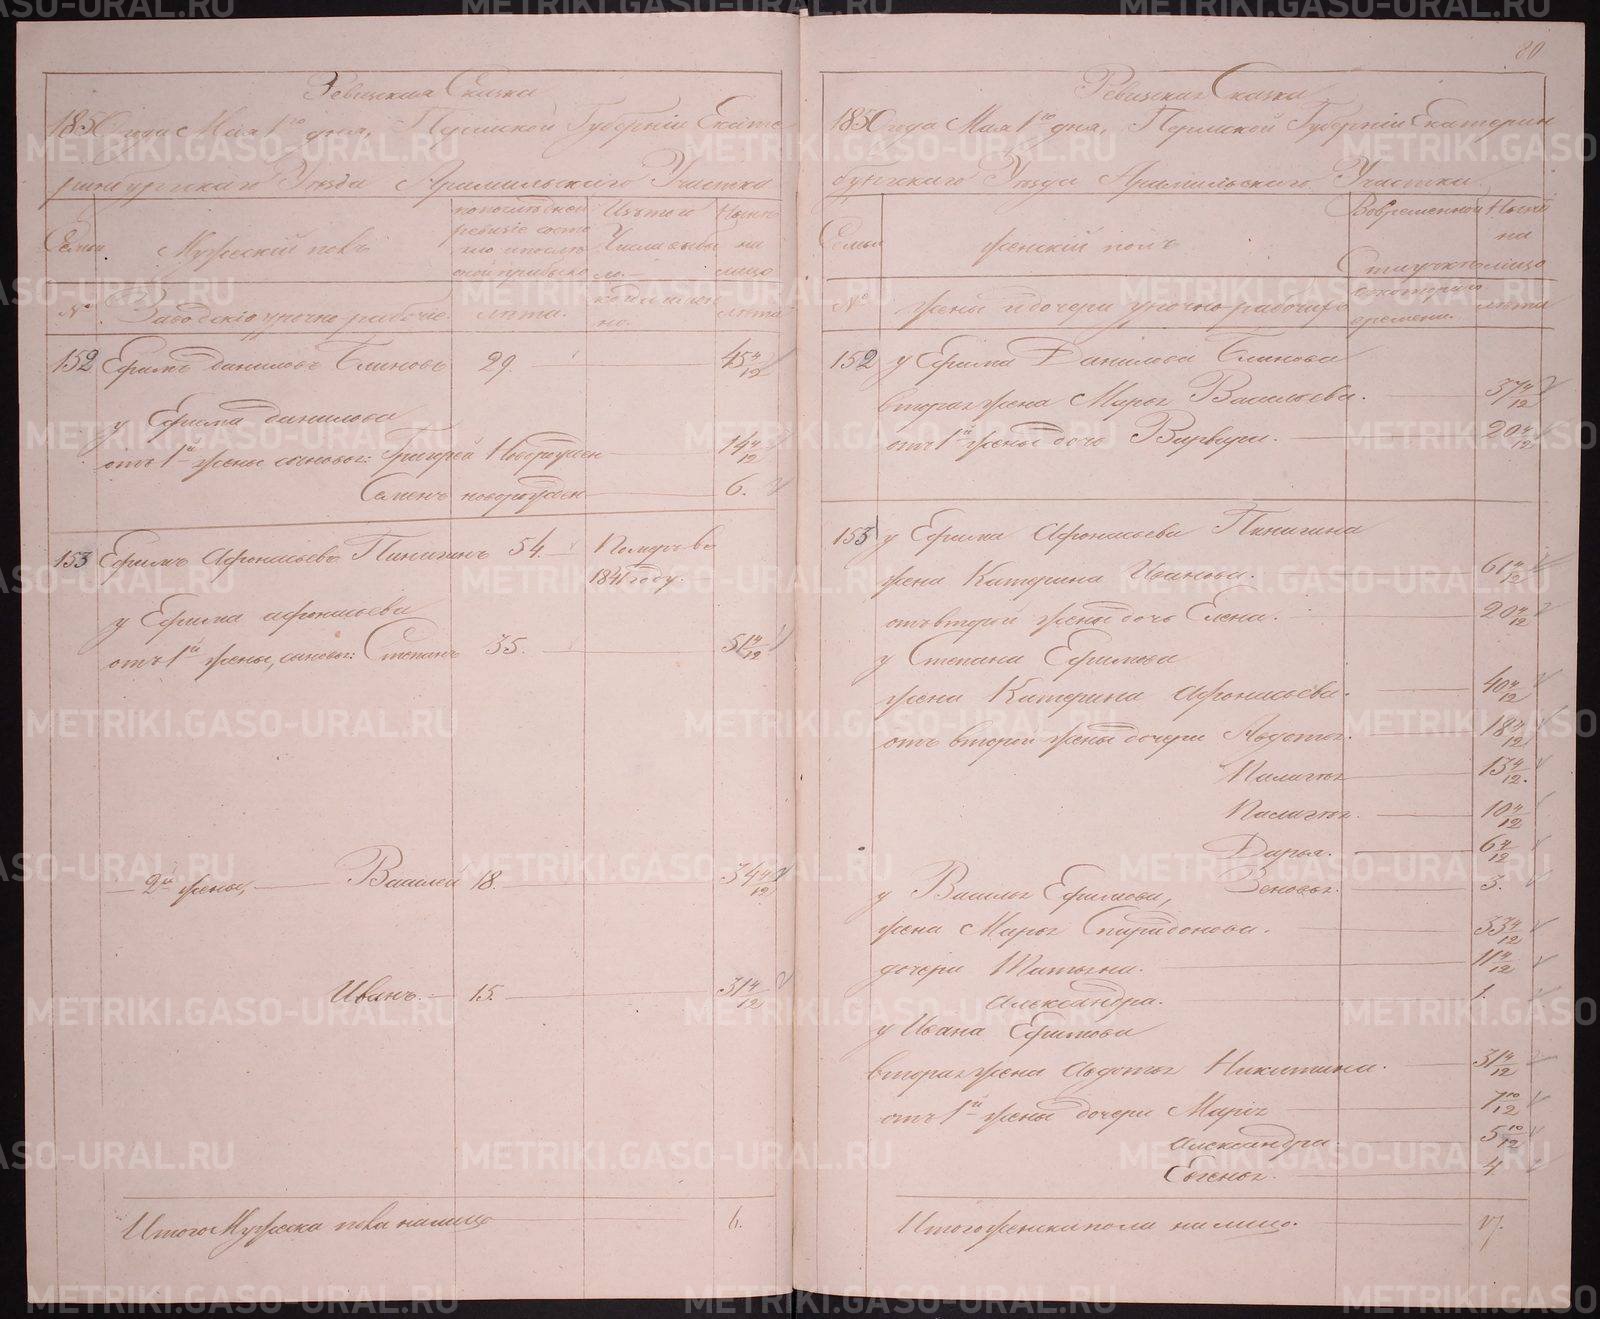 80
Ревизская Сказка
1850 года Мая 1го дня, Пермской Губерніи Екате-
ринбургскаго Уезда Арамильскаго Участка
Семьи
Мужескій полъ
по последней ревизіе состо
яло и после
оной прибыло
Изъ того
Числа выбы
ло.
Ныне
на
лицо
№
Заводскіе урочно рабочіе
лета.
когда имен
но.
лета
152 Ефимъ Даниловъ Блиновъ 29. 45 4/12
у Ефима Данилова
отъ 1й жены сыновья: Григорей Новорожден 14 4/12
Семенъ новорожден 6.
153 Ефимъ Афонасьевъ Пинигинъ 54. Померъ въ
1841 году.
у Ефима Афонасьева
отъ 1й жены, сыновья: Степанъ 35. 51 4/12
2й жены, Василей 18. 34 4/12
Иванъ. 15. 31 4/12
Итого Мужеска пола на лицо 6.
Ревизская Сказка
1850 года Мая 1го дня, Пермской Губерніи Екатерин
бургскаго Уезда Арамильскаго Участка.
Семьи
Женскій полъ
Во временной
Отлучке
Ныне
на
лицо
№
жены и дочери урочно рабочихъ
с котораго
времени.
лета
152 у Ефима Данилова Блинова
вторая жена Марья Васильева. 37 4/12
отъ 1й жены дочь Варвара. 20 4/12
153 у Ефима Афонасьева Пинигина
жена Катерина Иванова. 61 4/12
отъ второй жены дочь Елена. 20 4/12
у Степана Ефимова
жена Катерина Афонасьева. 40 4/12
отъ второй жены дочери Авдотья. 18 4/12
Палагея 13 4/12.
Палагея. 10 4/12
Дарья. 6 4/12
Зеновья. 3.
у Василья Ефимова,
жена Марья Спиридонова. 33 4/12
дочери Татьяна. 11 4/12
Александра. 1.
у Ивана Ефимова
вторая жена Авдотья Никитина. 31 4/12
отъ 1й жены дочери Марія 7 10/12
Александра. 5 10/12
Евгенья. 4
Итого женска пола на лицо. 17.
METRIKI.GASO-URAL.RU